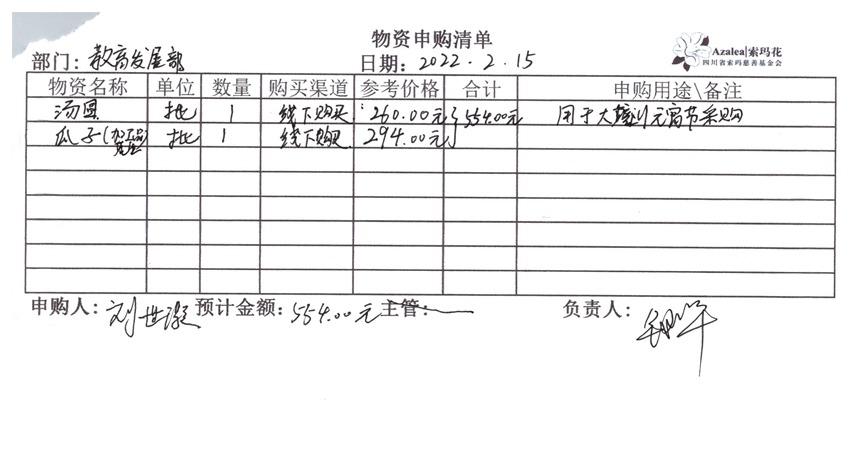 物资申购清单
Azalea|索玛花
四川省索玛慈善基金会
部门：教育发展部 日期：2022.2.15
物资名称 单位 数量 购买渠道 参考价格 合计 申购用途\备注
汤圆 批 1 线下购买 260.00元 554.00元 用于大 元宵节采购
瓜子( 批 1 线下购买 294.00元
申购人：刘世 预计金额：554.00元 主管： 负责人：